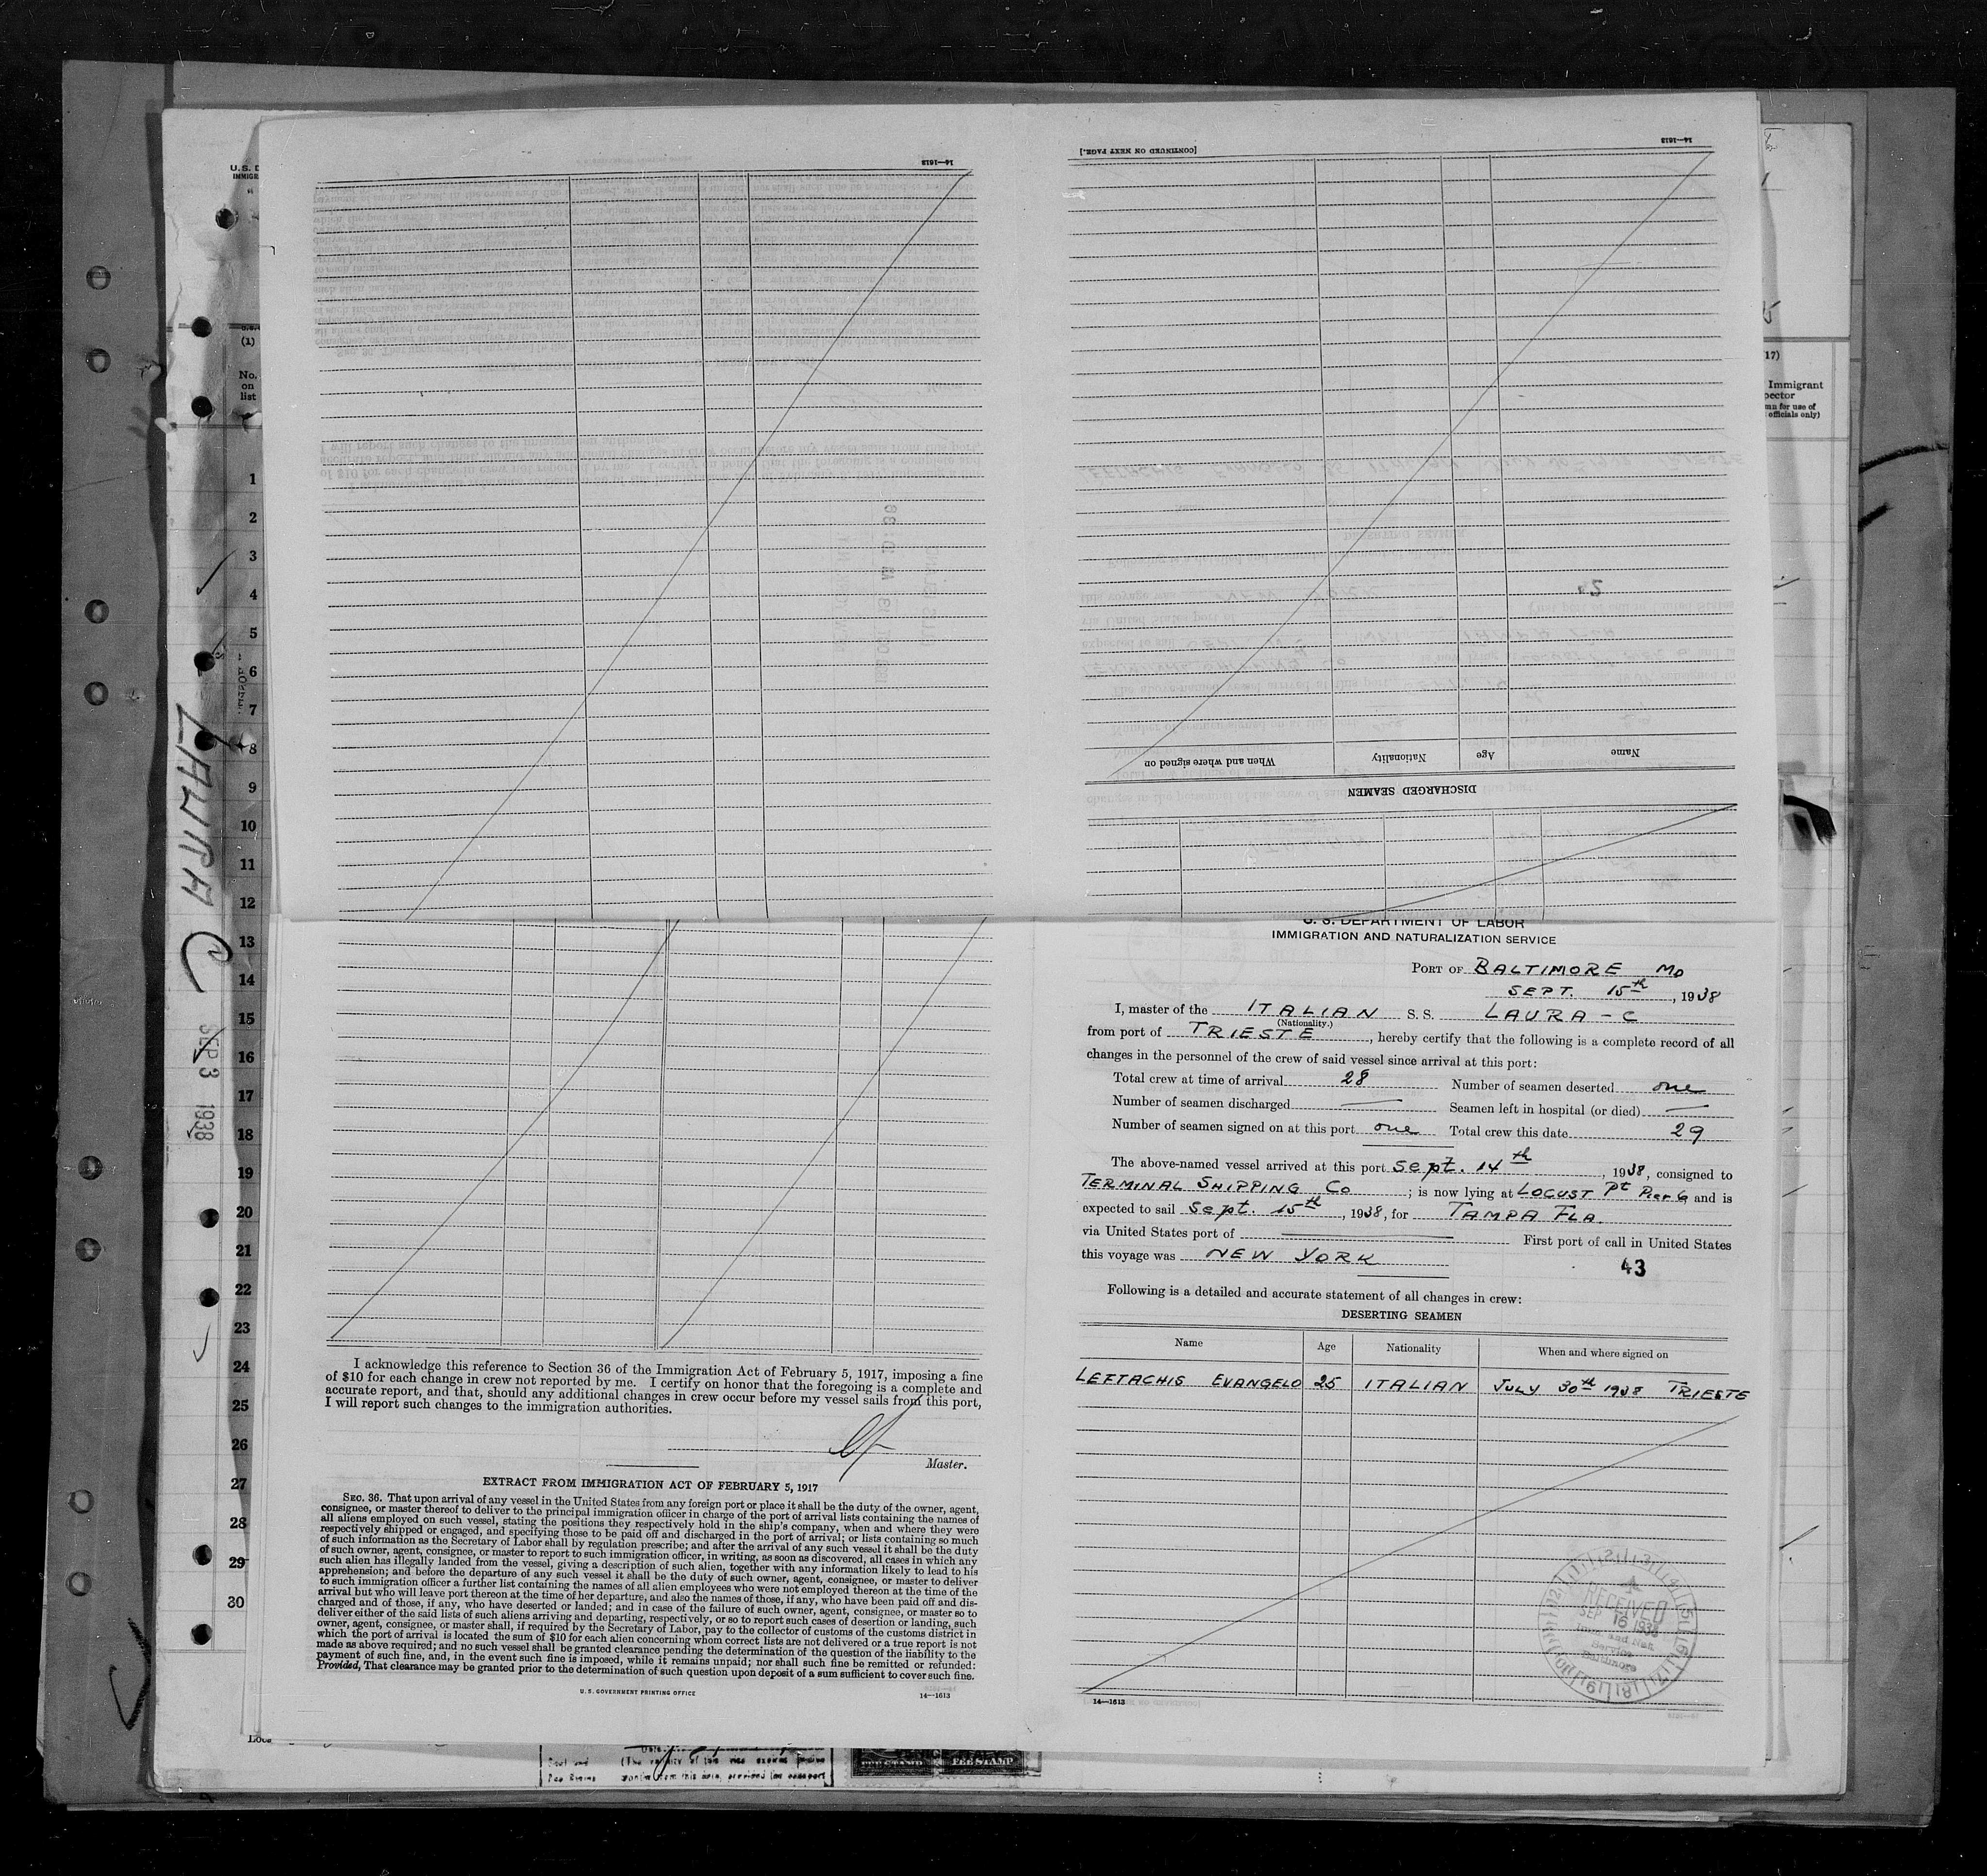 14—1613
[CONTINUED ON NEXT PAGE.]
14—1613
Name Age Nationality When and where signed on
DISCHARGED SEAMEN
U.S. D
IMMIG
(1)
No.
on
list
1
2
3
4
5
6
7
8
9
10
11
12
13
14
15
16
17
18
19
20
21
22
23
24
25
26
27
28
29
30
LAURA C
SEP 3 1938
17)
Immigrant
pector
mn for use of
officials only)
U. S. DEPARTMENT OF LABOR
IMMIGRATION AND NATURALIZATION SERVICE
PORT OF BALTIMORE MD
SEPT. 15th, 1938
I, master of the ITALIAN S. S. LAURA - C
(Nationality.)
from port of TRIESTE, hereby certify that the following is a complete record of all
changes in the personnel of the crew of said vessel since arrival at this port:
Total crew at time of arrival 28 Number of seamen deserted one
Number of seamen discharged — Seamen left in hospital (or died) —
Number of seamen signed on at this port one Total crew this date 29
The above-named vessel arrived at this port Sept. 14th, 1938, consigned to
TERMINAL SHIPPING Co; is now lying at LOCUST Pt Pier 6 and is
expected to sail Sept. 15th, 1938, for TAMPA FLA.
via United States port of — First port of call in United States
this voyage was NEW YORK
43
Following is a detailed and accurate statement of all changes in crew:
DESERTING SEAMEN
Name Age Nationality When and where signed on
LEFTACHIS EVANGELO 25 ITALIAN JULY 30th 1938 TRIESTE
RECEIVED
SEP 16 1938
Imm. and Nat.
Service
Baltimore
14—1613
I acknowledge this reference to Section 36 of the Immigration Act of February 5, 1917, imposing a fine
of $10 for each change in crew not reported by me. I certify on honor that the foregoing is a complete and
accurate report, and that, should any additional changes in crew occur before my vessel sails from this port,
I will report such changes to the immigration authorities.
Master.
EXTRACT FROM IMMIGRATION ACT OF FEBRUARY 5, 1917
SEC. 36. That upon arrival of any vessel in the United States from any foreign port or place it shall be the duty of the owner, agent,
consignee, or master thereof to deliver to the principal immigration officer in charge of the port of arrival lists containing the names of
all aliens employed on such vessel, stating the positions they respectively hold in the ship's company, when and where they were
respectively shipped or engaged, and specifying those to be paid off and discharged in the port of arrival; or lists containing so much
of such information as the Secretary of Labor shall by regulation prescribe; and after the arrival of any such vessel it shall be the duty
of such owner, agent, consignee, or master to report to such immigration officer, in writing, as soon as discovered, all cases in which any
such alien has illegally landed from the vessel, giving a description of such alien, together with any information likely to lead to his
apprehension; and before the departure of any such vessel it shall be the duty of such owner, agent, consignee, or master to deliver
to such immigration officer a further list containing the names of all alien employees who were not employed thereon at the time of the
arrival but who will leave port thereon at the time of her departure, and also the names of those, if any, who have been paid off and dis-
charged and of those, if any, who have deserted or landed; and in case of the failure of such owner, agent, consignee, or master so to
deliver either of the said lists of such aliens arriving and departing, respectively, or so to report such cases of desertion or landing, such
owner, agent, consignee, or master shall, if required by the Secretary of Labor, pay to the collector of customs of the customs district in
which the port of arrival is located the sum of $10 for each alien concerning whom correct lists are not delivered or a true report is not
made as above required; and no such vessel shall be granted clearance pending the determination of the question of the liability to the
payment of such fine, and, in the event such fine is imposed, while it remains unpaid; nor shall such fine be remitted or refunded:
Provided, That clearance may be granted prior to the determination of such question upon deposit of a sum sufficient to cover such fine.
U. S. GOVERNMENT PRINTING OFFICE 14—1613
FEE STAMP FEE STAMP